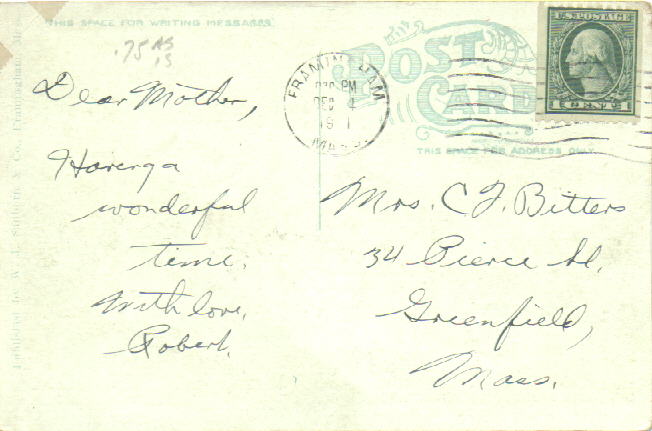 THIS SPACE FOR WRITING MESSAGES.
.75 AS
IS
Dear Mother,
Having a
wonderful
time.
With love,
Robert.
POST
CARD
THIS SPACE FOR ADDRESS ONLY.
FRAMINGHAM
PM
DEC 4
191
MASS.
U.S. POSTAGE
1 CENT 1
Mrs. C F. Bitters
34 Pierce St.
Greenfield,
Mass.
Published by W. H. & Co., Framingham,